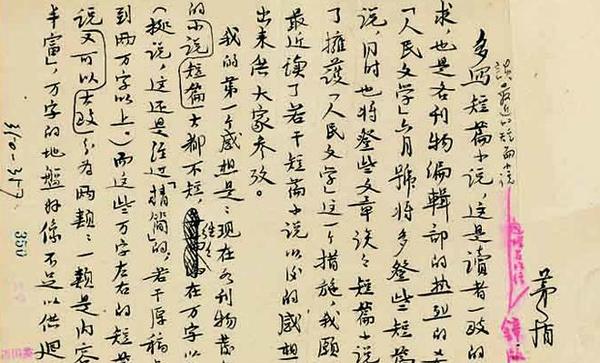 茅盾
谈最近的短篇小说
多写短篇小说,这是读者一致的
求,也是各刊物编辑部的热烈的
「人民文学」六月號将多登些短篇
说,同时也将登些文章谈々短篇小说
了擁護「人民文学」这一个措施,我願
最近读了若干短篇小说以后的感想
出来供大家参攷。
我的第一个感想是:现在各刊物發
的小说短篇大都不短,往々在万字以
(据说,这还是经过「精简」的,若干原稿
到两万字以上。)而这些万字左右的短篇
说又可以大致分为两類:一類是内容
丰富」,万字的地盤好像不足以供迴
310-347
350